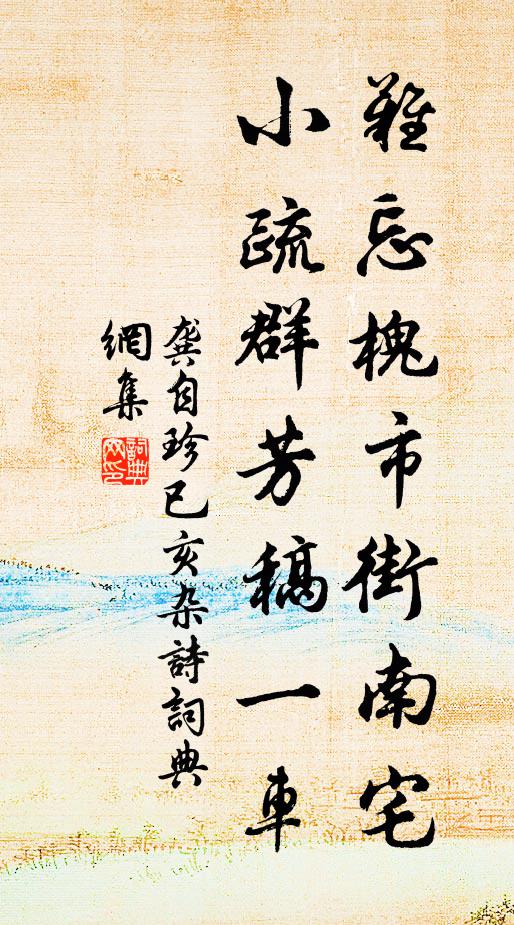 難忘槐市街南宅
小疏群芳稿一車
龔自珍己亥杂詩詞典
網集
詞典
網印